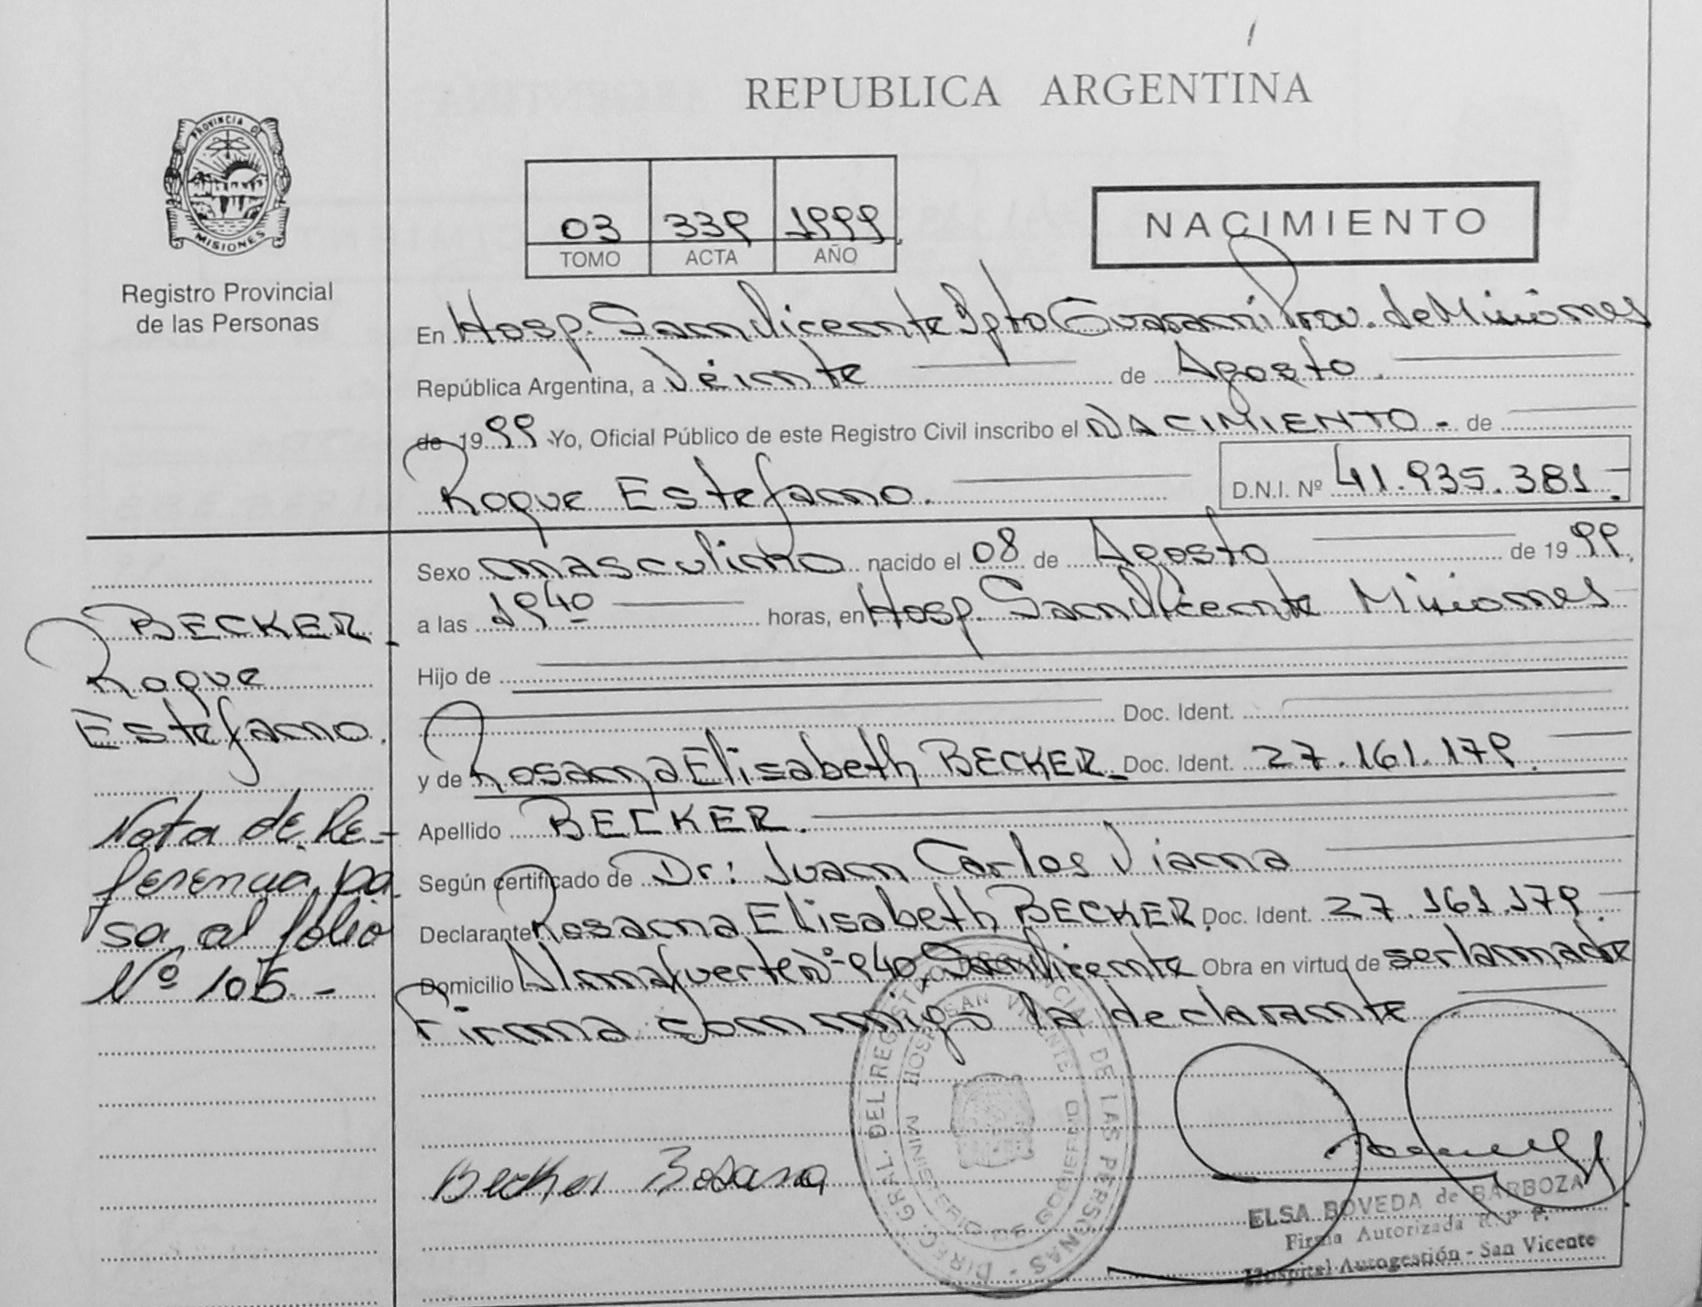 REPUBLICA ARGENTINA
PROVINCIA DE
MISIONES
Registro Provincial
de las Personas
03 339 1999
TOMO ACTA AÑO
NACIMIENTO
En Hosp. San Vicente Dpto Guarani Prov. de Misiones
República Argentina, a Veinte de Agosto
de 1999 Yo, Oficial Público de este Registro Civil inscribo el NACIMIENTO - de
Roque Estefano. D.N.I. Nº 41.935.381.-
Sexo masculino nacido el 08 de Agosto de 1999.
a las 1940 horas, en Hosp. San Vicente Misiones
Hijo de
Doc. Ident.
y de Rosana Elisabeth BECKER Doc. Ident. 27.161.179.
Apellido BECKER.
Según certificado de Dr: Juan Carlos Viana
Declarante Rosana Elisabeth BECKER. Doc. Ident. 27.161.179.
Domicilio Almafuerte Nº 940 San Vicente Obra en virtud de ser la madre
Firma conmigo la declarante
BECKER
Roque
Estefano.
Nota de Re-
ferencia pa
sa al folio
Nº 105.-
Becker Rosana
DIREC. GRAL. DEL REGISTRO PROVINCIAL DE LAS PERSONAS
HOSP. SAN VICENTE
MINISTERIO DE GOBIERNO
ELSA BOVEDA de BARBOZA
Firma Autorizada R. P. P.
Hospital Autogestión - San Vicente